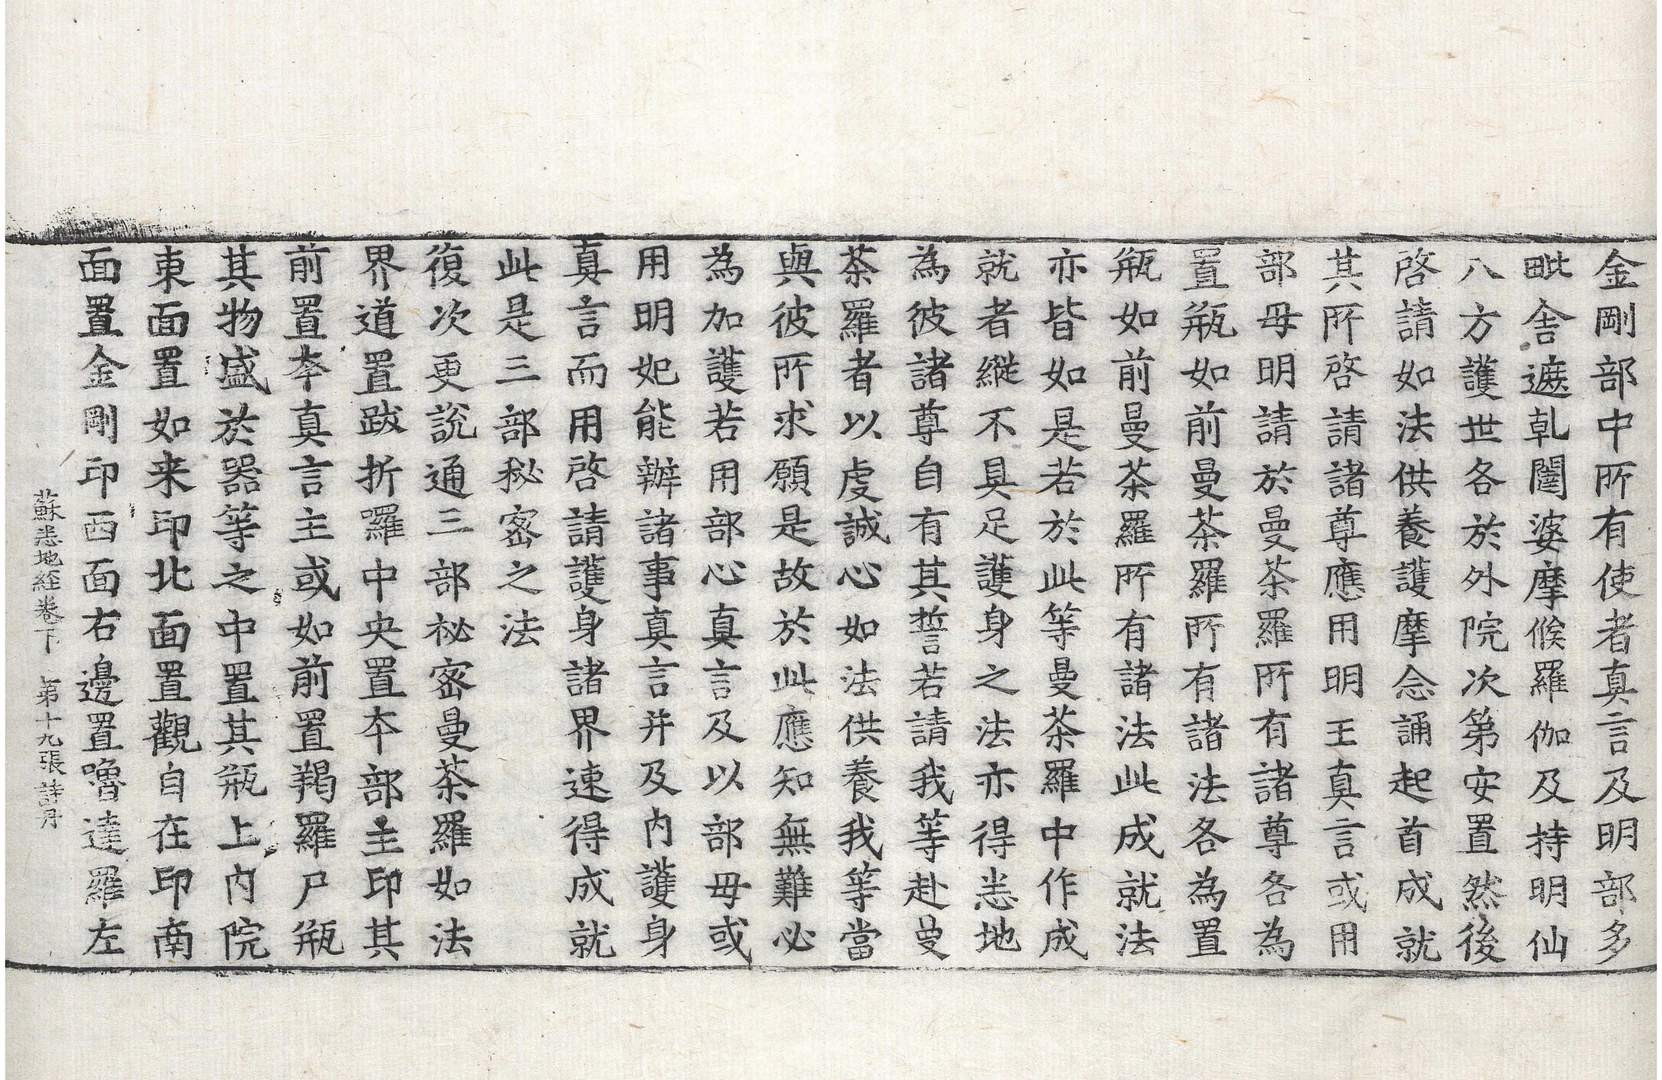 金剛部中所有使者真言及明部多
毗舍遮乹闥婆摩㬋羅伽及持明仙
八方護世各於外院次第安置然後
啓請如法供養護摩念誦起首成就
其所啓請諸尊應用明王真言或用
部母明請於曼茶羅所有諸尊各為
置瓶如前曼茶羅所有諸法各為置
瓶如前曼茶羅所有諸法此成就法
亦皆如是若於此等曼茶羅中作成
就者縱不具足護身之法亦得悉地
為彼諸尊自有其誓若請我等赴曼
茶羅者以虔誠心如法供養我等當
與彼所求願是故於此應知無難必
為加護若用部心真言及以部母或
用明妃能辦諸事真言并及内護身
真言而用啓請護身諸界速得成就
此是三部秘密之法
復次更説通三部祕密曼茶羅如法
界道置跋折囉中央置本部主印其
前置本真言主或如前置羯羅尸瓶
其物盛於器等之中置其瓶上内院
東面置如来印北面置觀自在印南
面置金剛印西面右邊置嚕達羅左
蘇悉地経卷下 第十九張 詩丹